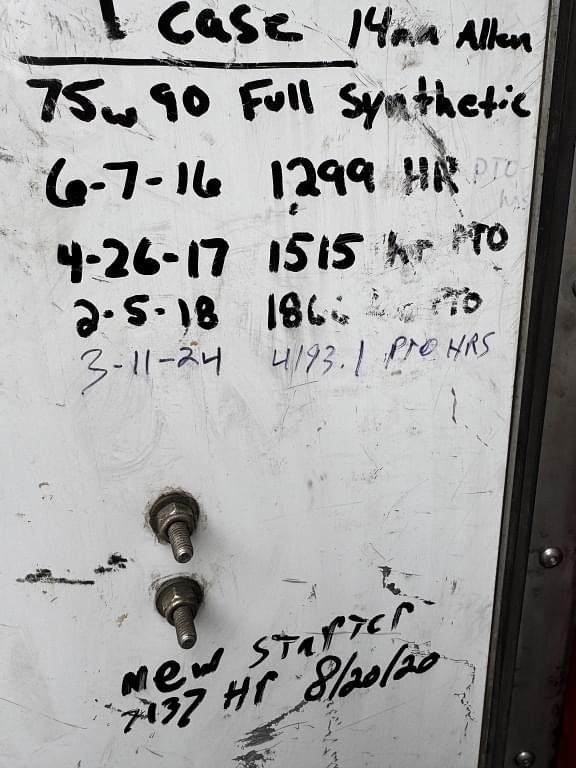 1 case 14mm Allen
75w 90 Full Synthetic
6-7-16 1299 HR PTO
4-26-17 1515 hr PTO
2-5-18 PTO
3-11-24 4193.1 PTO HRS
new starter
7137 Hr 8/20/20